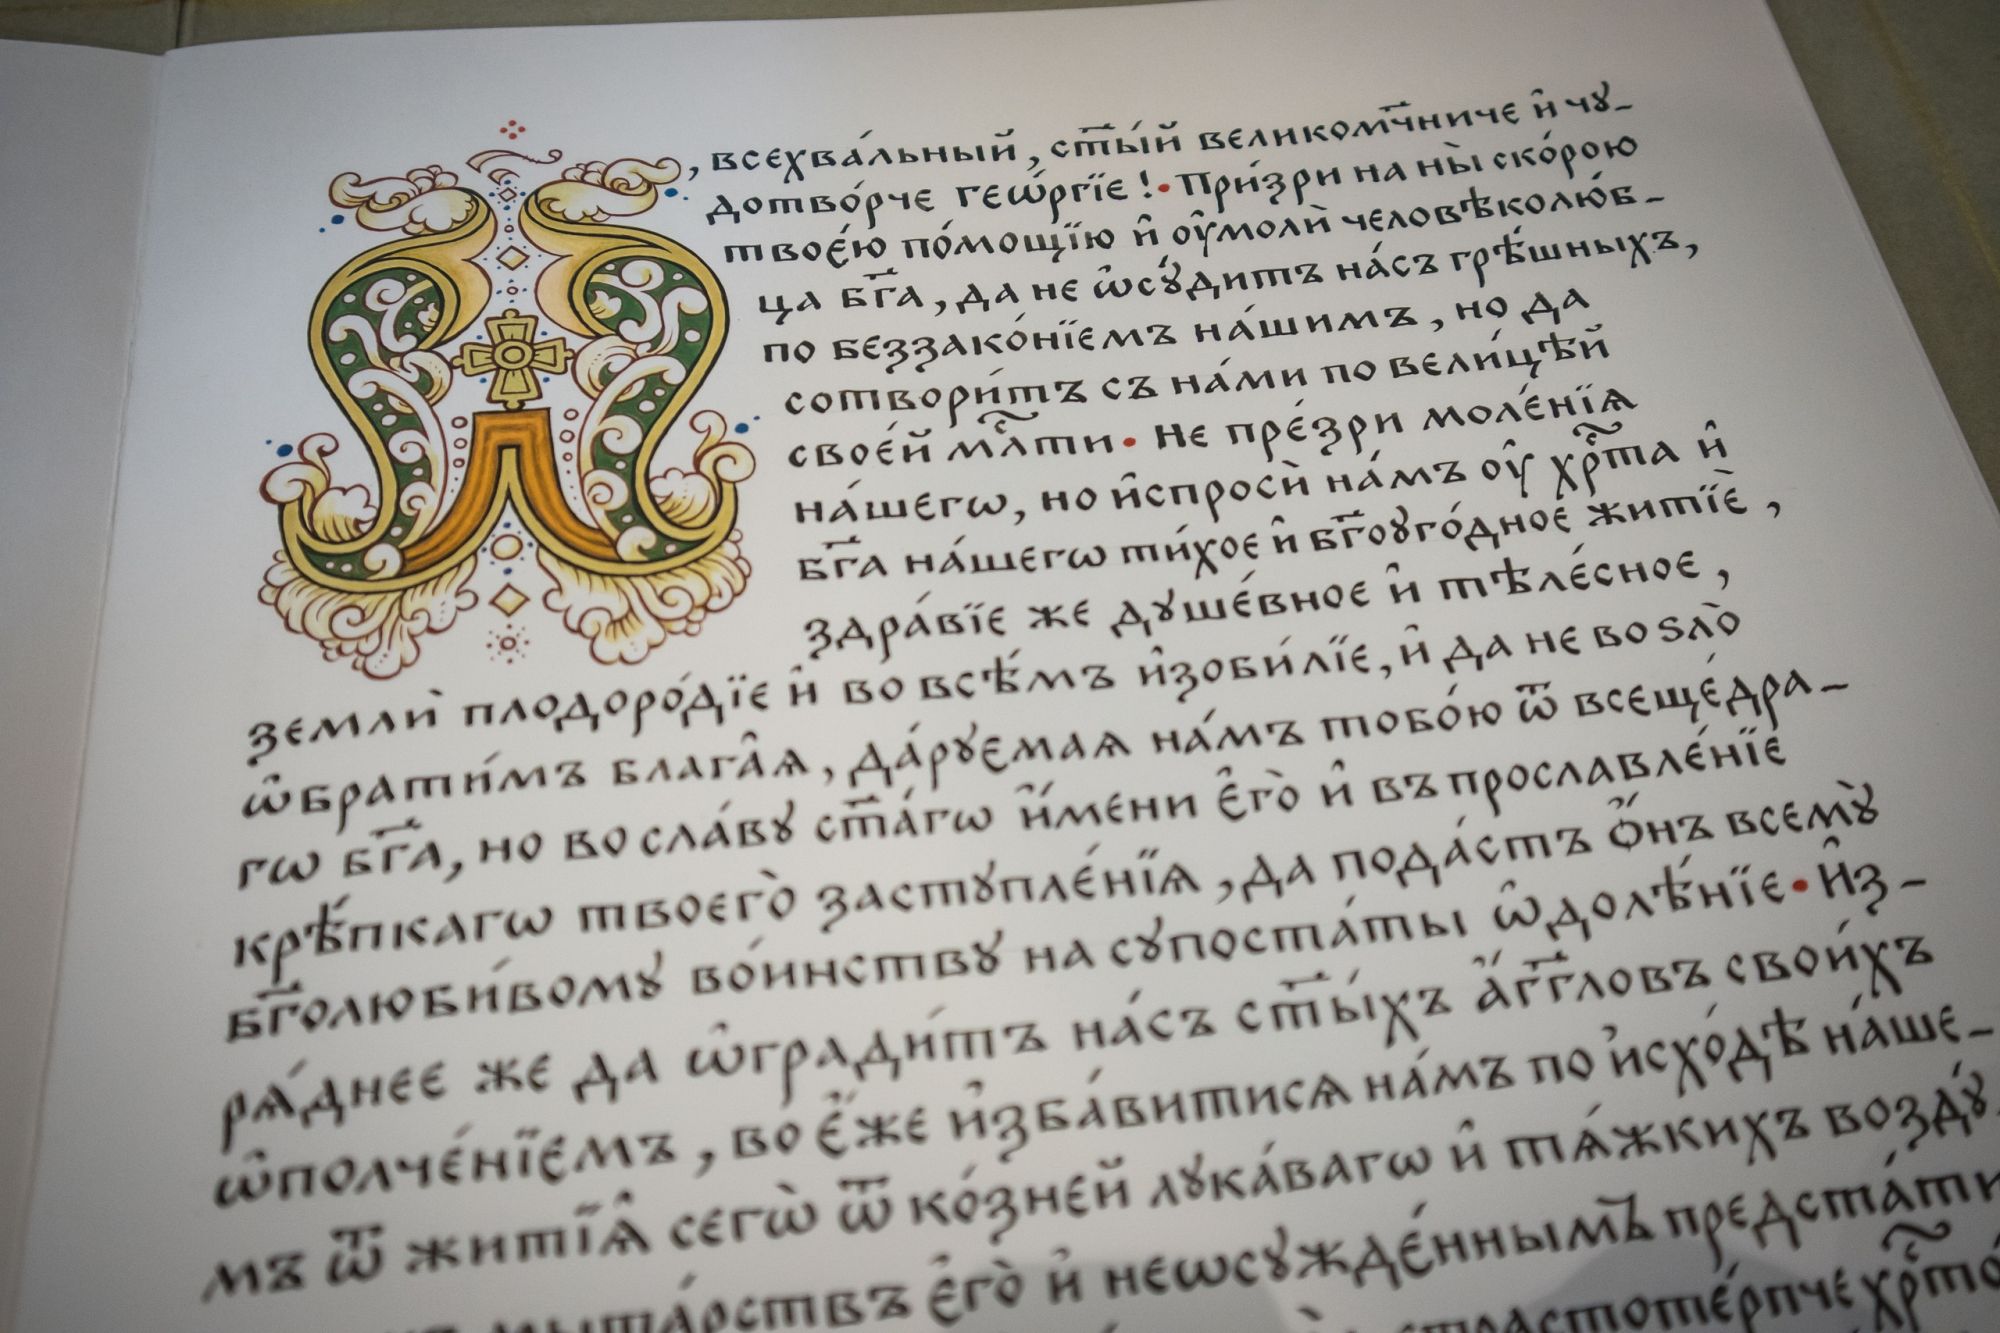 Ѡ, всехва́льный, ст҃ы́й великомч҃ниче и҆ чꙋ-
дотво́рче гео́ргїе! • При́зри на ны̀ ско́рою
твое́ю по́мощїю и҆ ᲂу҆молѝ человѣколю́б-
ца бг҃а, да не ѡ҆сꙋ́дитъ на́съ грѣ́шныхъ,
по беззако́нїємъ на́шимъ, но да
сотвори́тъ съ на́ми по вели́цѣй
свое́й млⷭ҇ти • не пре́зри моле́нїѧ
на́шегѡ, но и҆спросѝ на́мъ ᲂу҆ хрⷭ҇та и҆
бг҃а на́шегѡ ти́хое и҆ бг҃оуго́дное житїѐ,
здра́вїе же дꙋше́вное и҆ тѣле́сное,
землѝ плодоро́дїе и҆ во всѣ́мъ и҆зоби́лїе, и҆ да не во ѕло̀
ѡ҆брати́мъ блага̑ѧ, да́рꙋемаѧ на́мъ тобо́ю ѿ всеще́дра-
гѡ бг҃а, но во сла́вꙋ ст҃а́гѡ и҆́мени є҆гѡ̀ и҆ въ прославле́нїе
крѣ́пкагѡ твоегѡ̀ застꙋпле́нїѧ, да пода́стъ ѻ҆́нъ всемꙋ̀
бг҃олюби́вомꙋ во́инствꙋ на сꙋпоста́ты ѡ҆долѣ́нїе • И҆з-
рѧ́днее же да ѡ҆гради́тъ на́съ ст҃ы́хъ а҆́гг҃ловъ свои́хъ
ѡ҆полче́нїемъ, во є҆́же и҆зба́витисѧ на́мъ по и҆схо́дѣ на́ше-
мъ ѿ житїѧ̑ сегѡ̀ ѿ ко́зней лꙋка́вагѡ и҆ тѧ́жкихъ воздꙋ́
мыта́рствъ є҆гѡ̀ и҆ неѡсꙋжде́ннымъ предста́ти